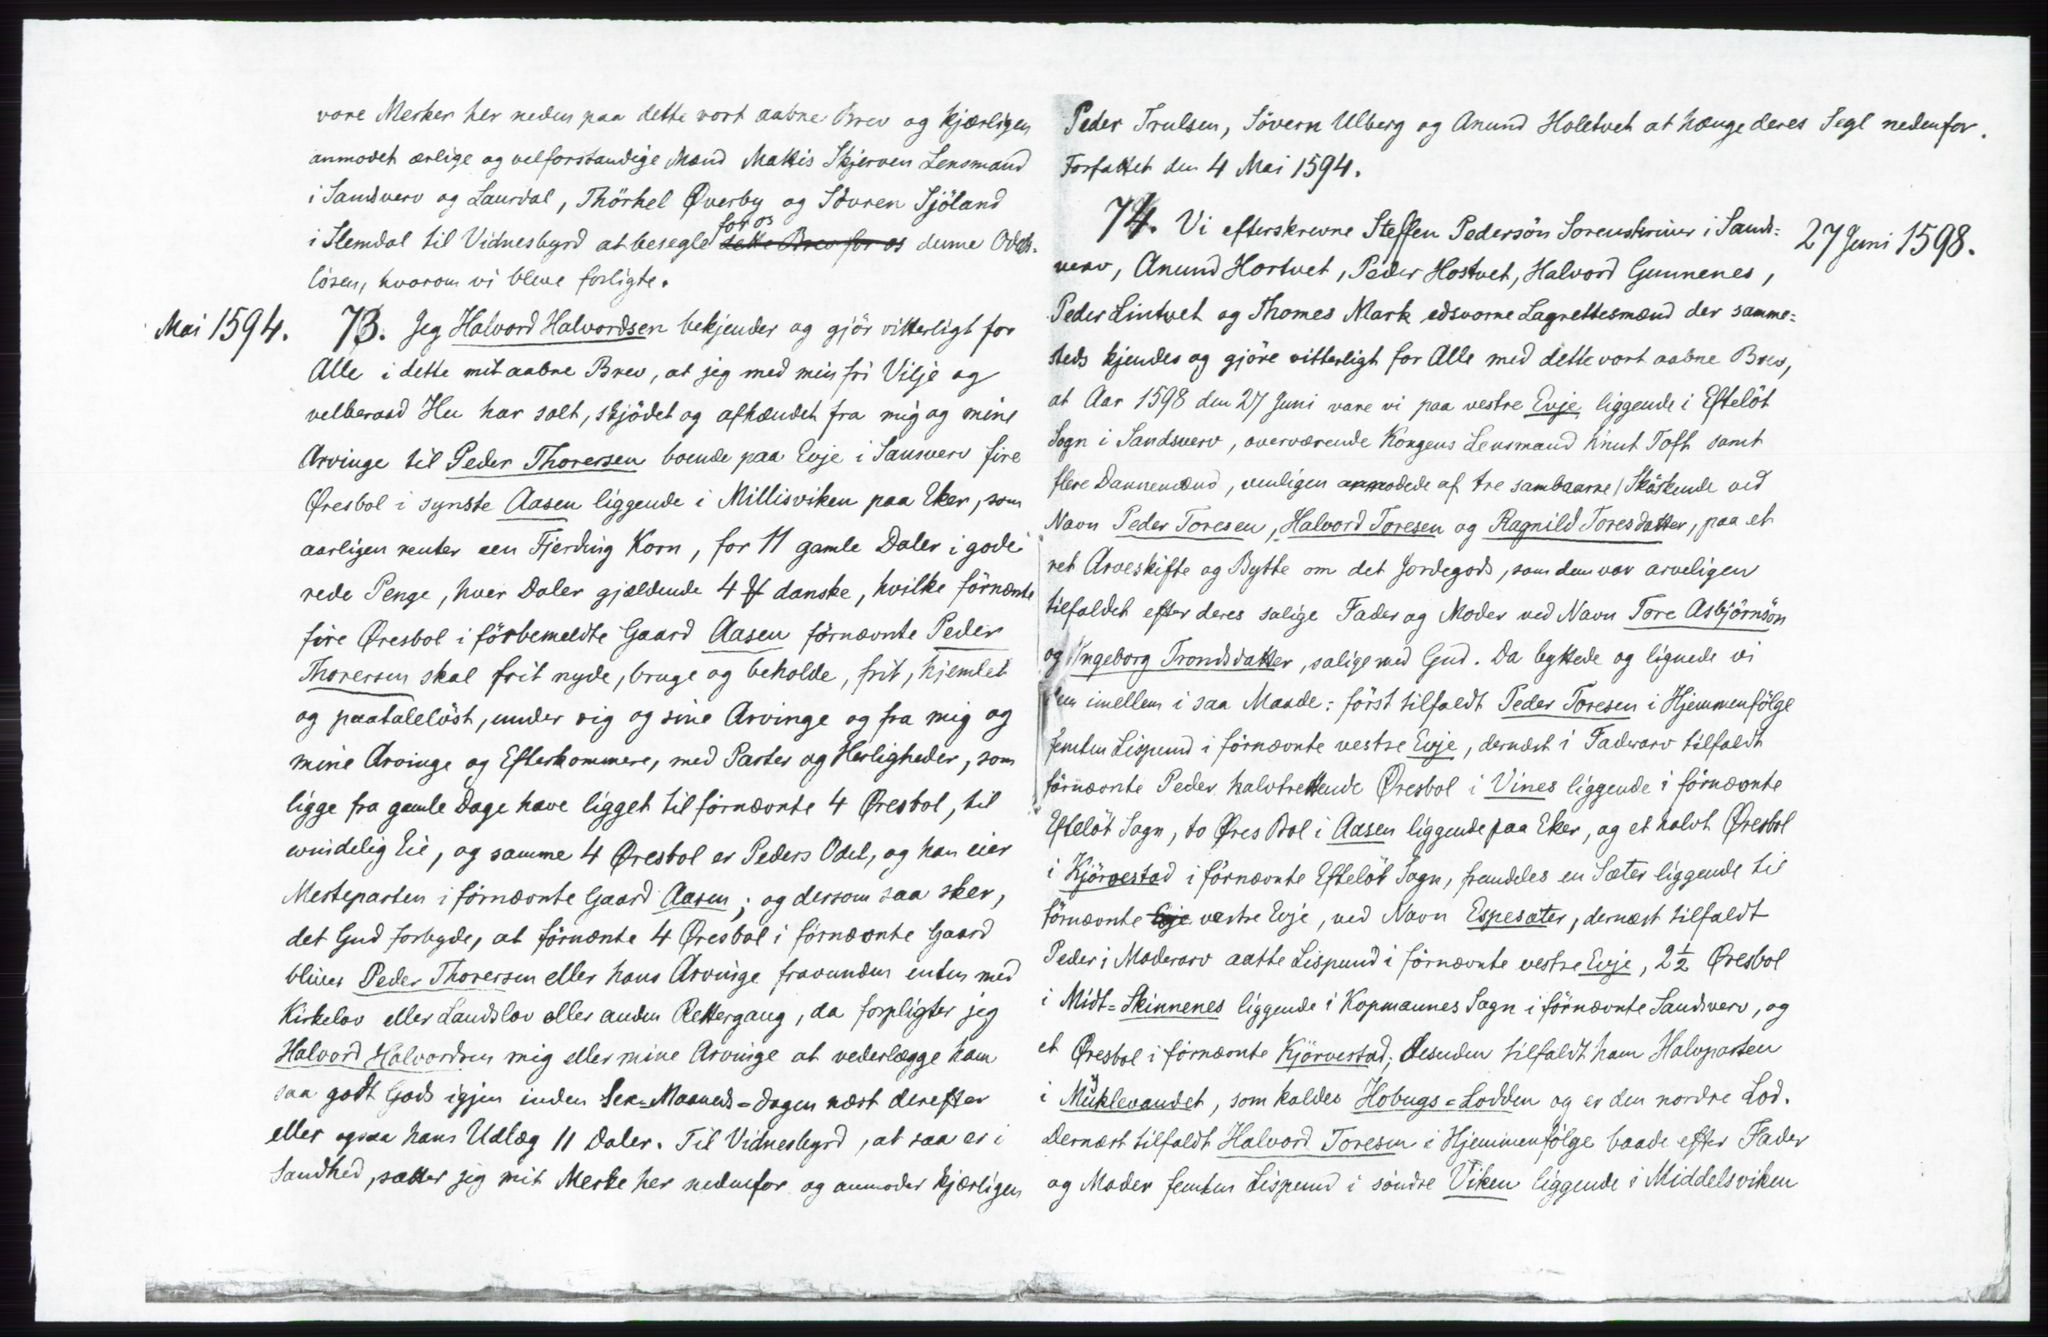 vore Merker her neden paa dette vort aabne Brev og kjærligen
anmodet ærlige og velforstandige Mænd Mattis Skjerven Lensmand
i Sandsverv og Laurdal, Thörkel Øverby og Sövren Sjöland
for os
i Slemdal til Vidnesbyrd at besegle dette Brev for os denne Odels-
lösen, hvorom vi bleve forligte.
Mai 1594. 73. Jeg Halvord Halvordsen bekjender og gjör vitterligt for
Alle i dette mit aabne Brev, at jeg med min fri Vilje og
velberaad Hu har solt, skjödet og afhændet fra mig og mine
Arvinge til Peder Thorersen boende paa Evje i Sansverv fire
Øresbol i synste Aasen liggende i Millisviken paa Eker, som
aarligen renter een Fjerding Korn, for 11 gamle Daler i gode
rede Penge, hver Daler gjældende 4 danske, hvilke förnænte
fire Øresbol i förbemeldte Gaard Aasen förnævnte Peder
Thorersen skal frit nyde, bruge og beholde, frit, hjemlet
og paatalelöst, under sig og sine Arvinge og fra mig og
mine Arvinge og Efterkommere, med Parter og Herligheder, som
ligge fra gamle Dage have ligget til förnævnte 4 Øresbol, til
evindelig Eie, og samme 4 Øresbol er Peders Odel, og han eier
Mesteparten i förnævnte Gaard Aasen; og dersom saa sker,
det Gud forbyde, at förnænte 4 Øresbol i förnævnte Gaard
bliver Peder Thorersen eller hans Arvinge fravunden enten med
Kirkelov eller Landslov eller anden Rettergang, da forpligter jeg
Halvord Halvordsen mig eller mine Arvinge at vederlægge ham
saa godt Gods igjen inden Sex-Maaneds-Dagen næst derefter
eller ogsaa hans Udlæg 11 Daler. Til Vidnesbyrd, at saa er i
Sandhed, sætter jeg mit Merke her nedenfor og anmoder kjærligen
Peder Trulsen, Sövern Ulberg og Anund Holetvet at hænge deres Segl nedenfor.
Forfattet den 4 Mai 1594.
74. Vi efterskrevne Steffen Pedersön Sorenskriver i Sands= 27 Juni 1598.
verv, Anund Hortvet, Peder Hostvet, Halvord Gunnenes,
Peder Lintvet og Thomes Mark edsvorne Lagrettesmænd der samme=
steds kjendes og gjöre vitterligt for Alle med dette vort aabne Brev,
at Aar 1598 den 27 Juni vare vi paa vestre Evje liggende i Eftelöt
Sogn i Sandsverv, overværende Kongens Lensmand Knut Toft samt
flere Dannemænd, venligen anmodede af tre sambaarne Söskende ved
Navn Peder Toresen, Halvord Toresen og Ragnild Toresdatter, paa et
ret Arveskifte og Bytte om det Jordegods, som dem var arveligen
tilfaldet efter deres salige Fader og Moder ved Navn Tore Asbjörnsön
og Ingeborg Trondsdatter, salige med Gud. Da byttede og lignede vi
dem imellem i saa Maade: först tilfaldt Peder Toresen i Hjemmenfölge
femten Lispund i förnævnte vestre Evje, dernæst i Faderarv tilfaldt
förnævnte Peder halvtrettende Øresbol i Vines liggende i förnævnte
Eftelöt Sogn, to Øres Bol i Aasen liggende paa Eker, og et halvt Øresbol
i Kjörvestad i förnævnte Eftelöt Sogn, fremdeles en Sæter liggende til
förnævnte Evje vestre Evje, ved Navn Espesæter, dernæst tilfaldt
Peder i Moderarv aatte Lispund i förnævnte vestre Evje, 2 1/2 Øresbol
i Midt=Skinnenes liggende i Kopmannes Sogn i förnævnte Sandsverv, og
et Øresbol i förnævnte Kjörvestad; desuden tilfaldt ham Halvparten
i Myklevandet, som kaldes Hobugs=Lodden og er den nordre Lod.
Dernæst tilfaldt Halvord Toresen i Hjemmenfölge baade efter Fader
og Moder femten Lispund i söndre Viken liggende i Middelsviken